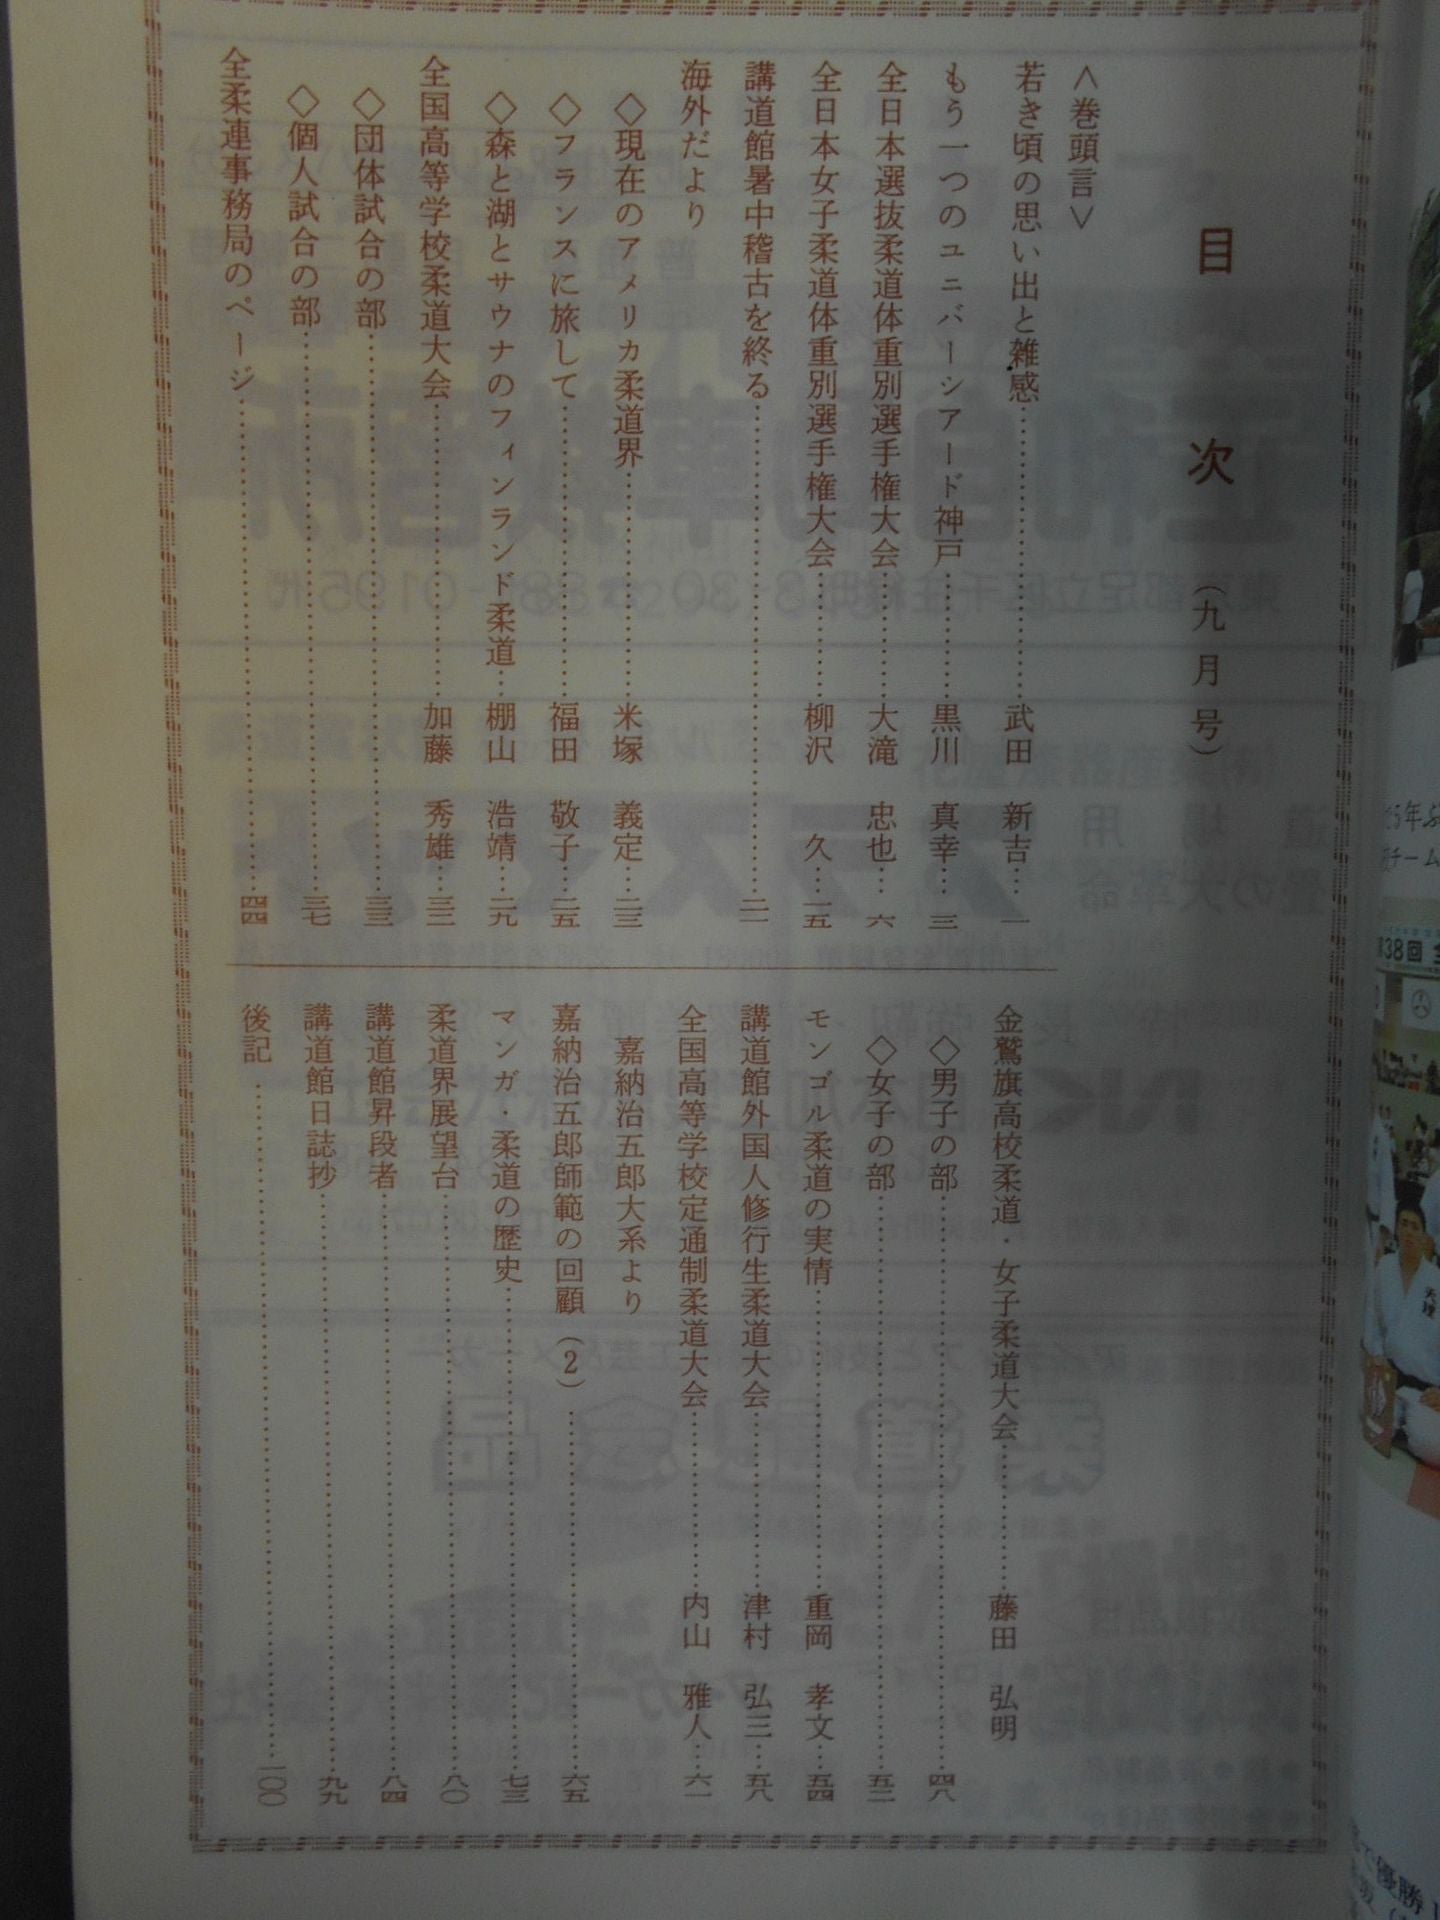 目次(九月号)
<巻頭言>
若き頃の思い出と雑感……武田 新吉…一
もう一つのユニバーシアード神戸……黒川 真幸…三
全日本選抜柔道体重別選手権大会……大滝 忠也…六
全日本女子柔道体重別選手権大会……柳沢 久…一五
講道館暑中稽古を終る……二一
海外だより
◇現在のアメリカ柔道界……米塚 義定…二三
◇フランスに旅して……福田 敬子…二五
◇森と湖とサウナのフィンランド柔道…棚山 浩靖…二九
全国高等学校柔道大会……加藤 秀雄…三二
◇団体試合の部……三三
◇個人試合の部……三七
全柔連事務局のページ……四四
金鷲旗高校柔道・女子柔道大会……藤田 弘明
◇男子の部……四八
◇女子の部……五二
モンゴル柔道の実情……重岡 孝文…五四
講道館外国人修行生柔道大会……津村 弘三…五八
全国高等学校定通制柔道大会……内山 雅人…六一
嘉納治五郎大系より
嘉納治五郎師範の回顧(2)……六五
マンガ・柔道の歴史……七三
柔道界展望台……八〇
講道館昇段者……八四
講道館日誌抄……九九
後記……一〇〇
第38回 全
天理
で優勝し